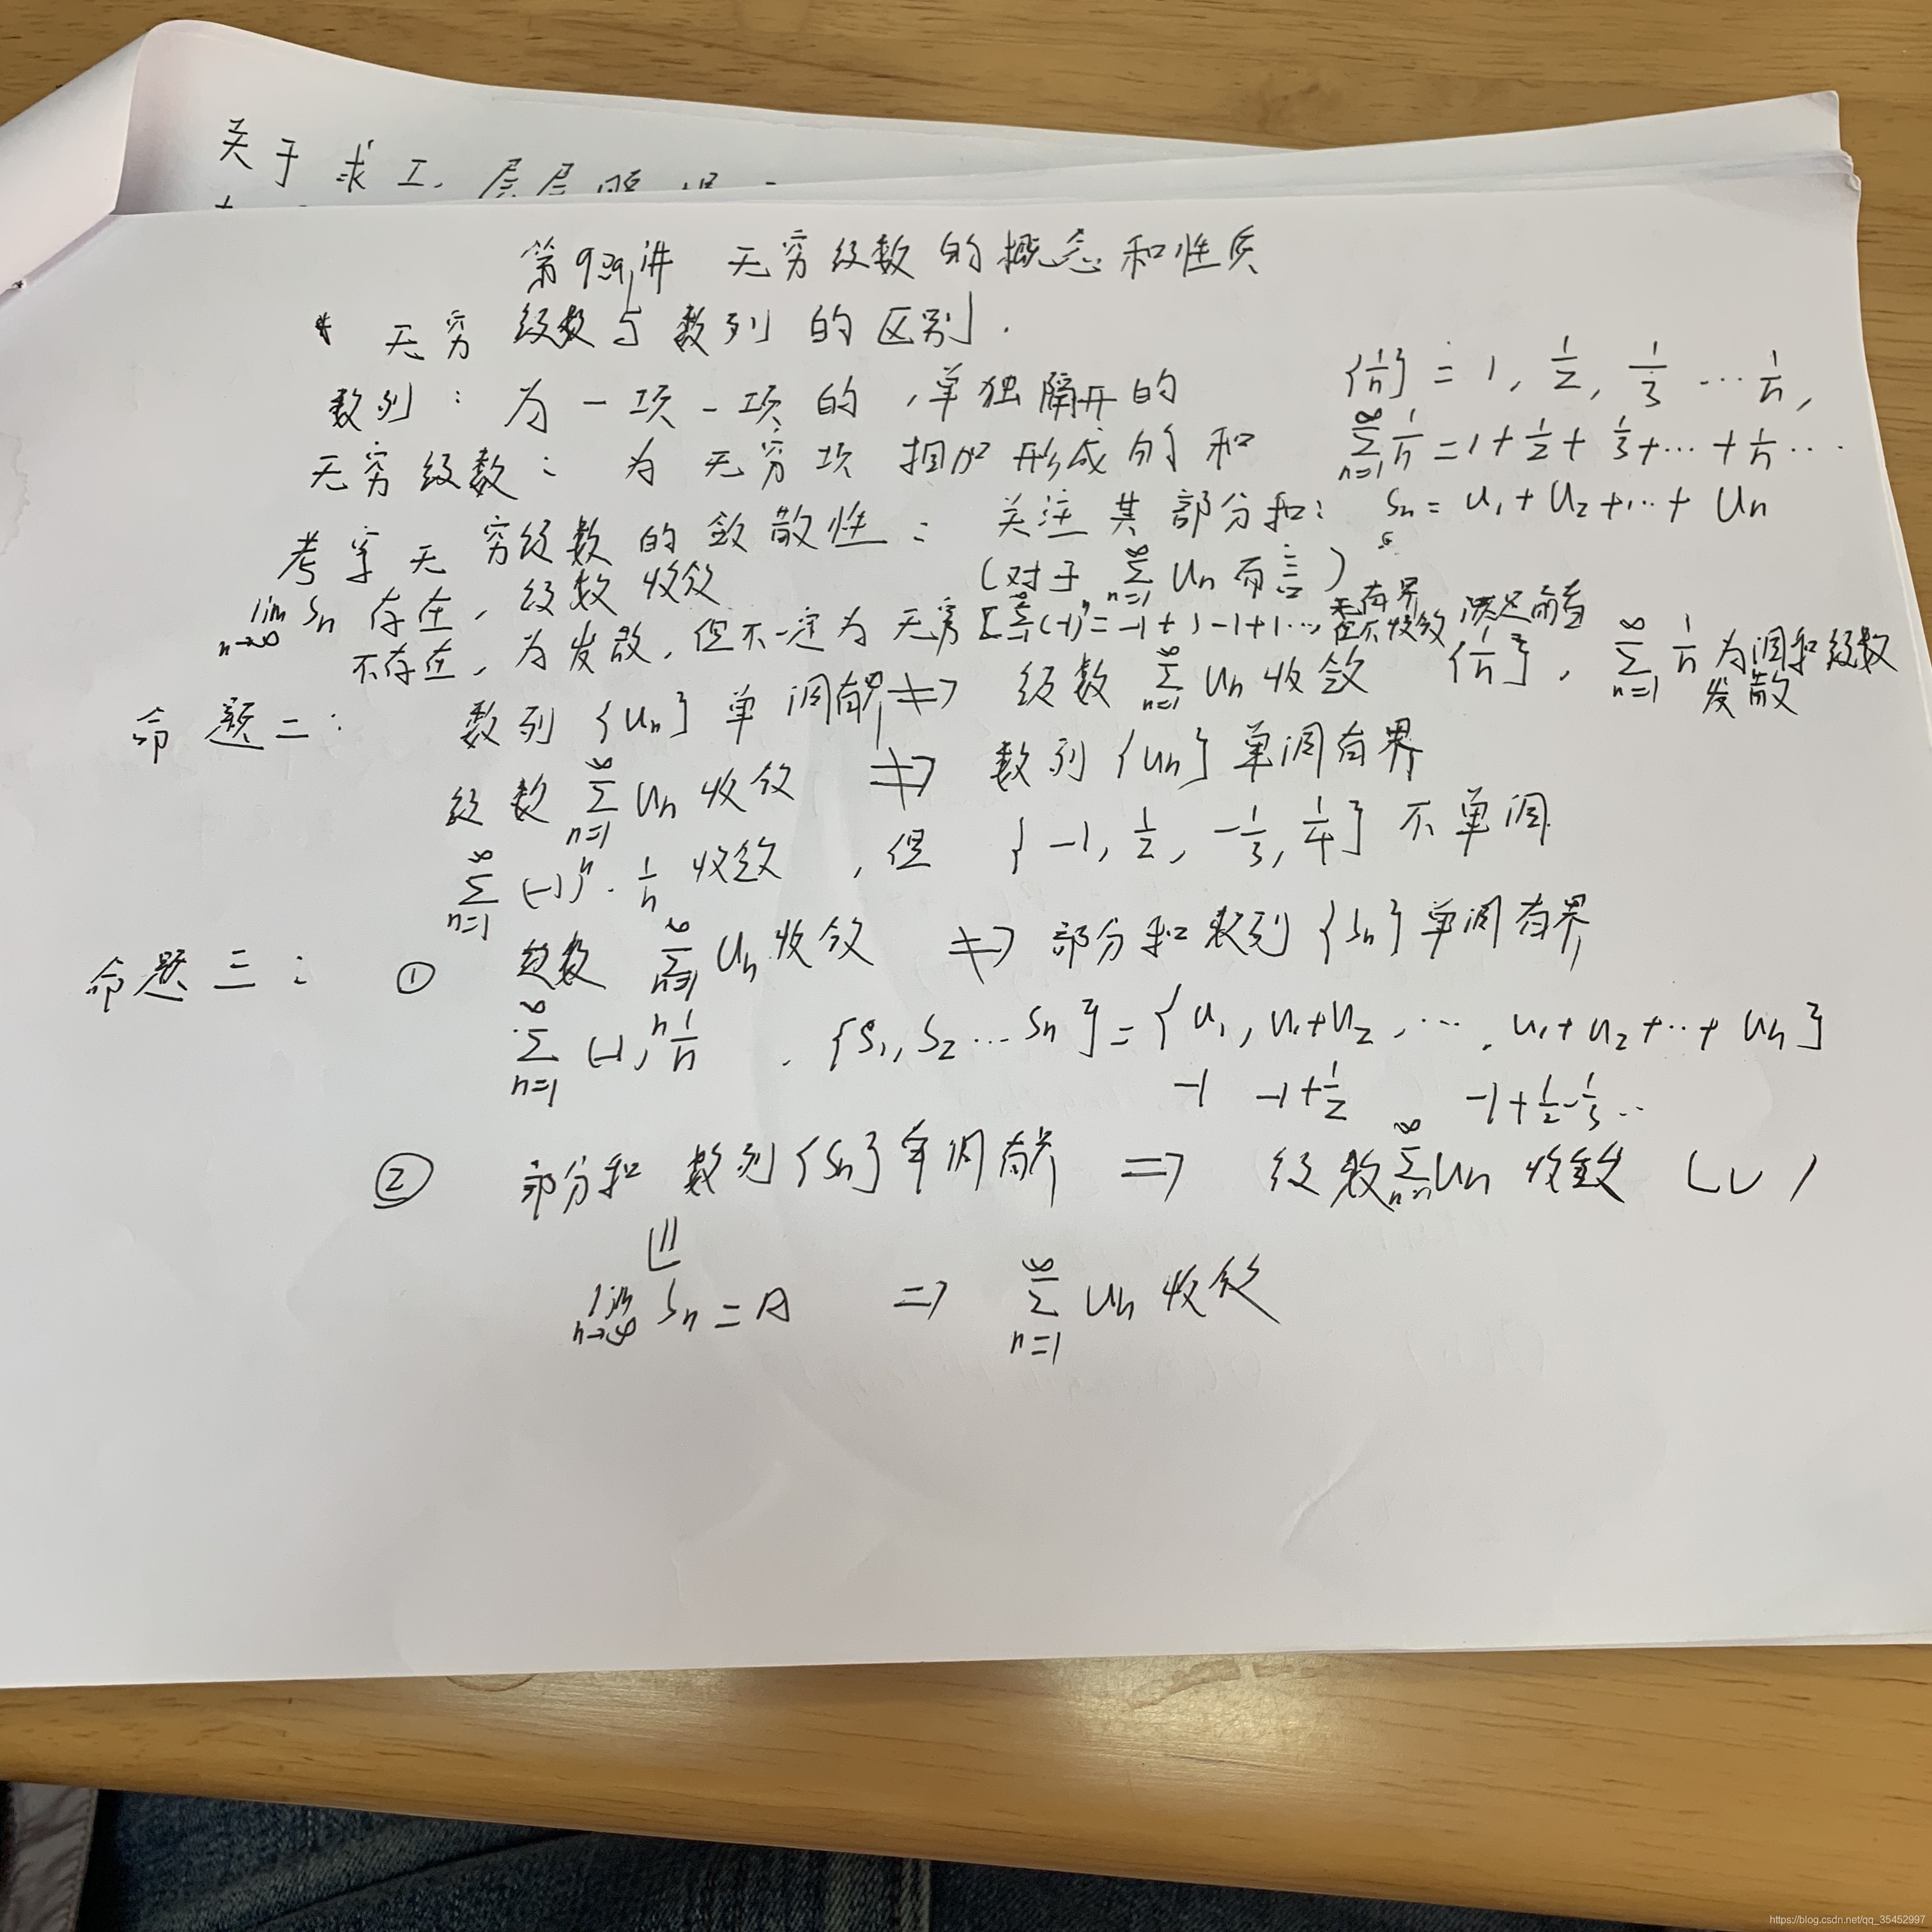 关于求
第93讲 无穷级数的概念和性质
* 无穷级数与数列的区别.
数列: 为一项一项的,单独隔开的 {1/n} = 1, 1/2, 1/3 ... 1/n,
无穷级数: 为无穷项相加形成的和 ∑_{n=1}^{∞} 1/n = 1 + 1/2 + 1/3 + ... + 1/n ...
考察无穷级数的敛散性: 关注其部分和: Sn = u1 + u2 + ... + un
(对于 ∑_{n=1}^{∞} un 而言)
lim_{n→∞} Sn 存在, 级数收敛
不存在, 为发散, 但不一定为无穷 [∑(-1)^n = -1+1-1+1..., 有界但不收敛
命题二: 数列{un}单调有界 ⇏ 级数 ∑_{n=1}^{∞} un 收敛 满足前者 {1/n}, ∑_{n=1}^{∞} 1/n 为调和级数 发散
级数 ∑_{n=1}^{∞} un 收敛 ⇏ 数列{un}单调有界
∑_{n=1}^{∞} (-1)^n · 1/n 收敛, 但 {-1, 1/2, -1/3, 1/4} 不单调
命题三: ① 级数 ∑_{n=1}^{∞} un 收敛 ⇏ 部分和数列{Sn}单调有界
∑_{n=1}^{∞} (-1)^n 1/n . {S1, S2 ... Sn} = {u1, u1+u2, ..., u1+u2+...+un}
-1 -1+1/2 -1+1/2-1/3...
② 部分和数列{Sn}单调有界 ⇒ 级数 ∑un 收敛 (√)
⇓
lim_{n→∞} Sn = A ⇒ ∑_{n=1}^{∞} un 收敛
https://blog.csdn.net/qq_35452997